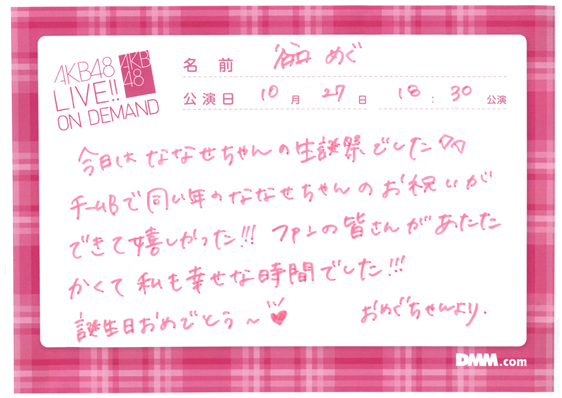 AKB48
LIVE!!
ON DEMAND
AKB
48
名前 谷口 めぐ
公演日 10月 27日 18:30公演
今日は ななせちゃんの生誕祭でした
チームBで同い年のななせちゃんのお祝いが
できて嬉しかった!!! ファンの皆さんがあたた
かくて私も幸せな時間でした!!!
誕生日おめでとう〜
おめぐちゃんより.
DMM.com